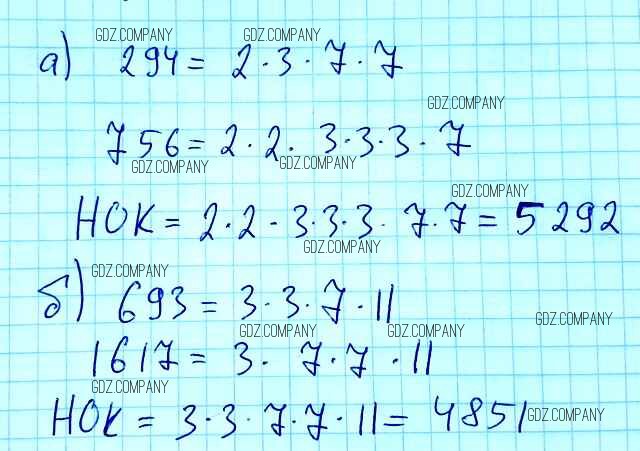 GDZ.COMPANY GDZ.COMPANY
а) 294 = 2 · 3 · 7 · 7
GDZ.COMPANY
756 = 2 · 2 · 3 · 3 · 3 · 7
GDZ.COMPANY GDZ.COMPANY
GDZ.COMPANY
НОК = 2 · 2 · 3 · 3 · 3 · 7 · 7 = 5292
GDZ.COMPANY
GDZ.COMPANY
б) 693 = 3 · 3 · 7 · 11
GDZ.COMPANY
GDZ.COMPANY GDZ.COMPANY
1617 = 3 · 7 · 7 · 11
GDZ.COMPANY
НОК = 3 · 3 · 7 · 7 · 11 = 4851
GDZ.COMPANY